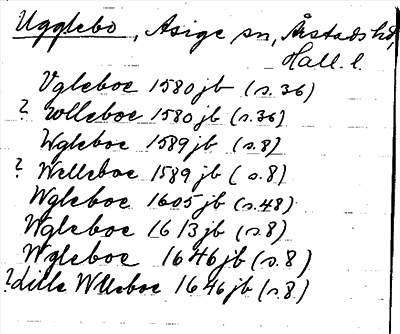 Ugglebo, Asige sn, Årstads hd,
Hall. l.
Vgleboe 1580 jb (s. 36)
? wlleboe 1580 jb (s. 36)
Wgleboe 1589 jb (s. 8)
? Welleboe 1589 jb (s. 8)
Wgleboe 1605 jb (s. 48)
Wgleboe 1613 jb (s. 8)
Wgleboe 1646 jb (s. 8)
? Lille Wlleboe 1646 jb (s. 8)